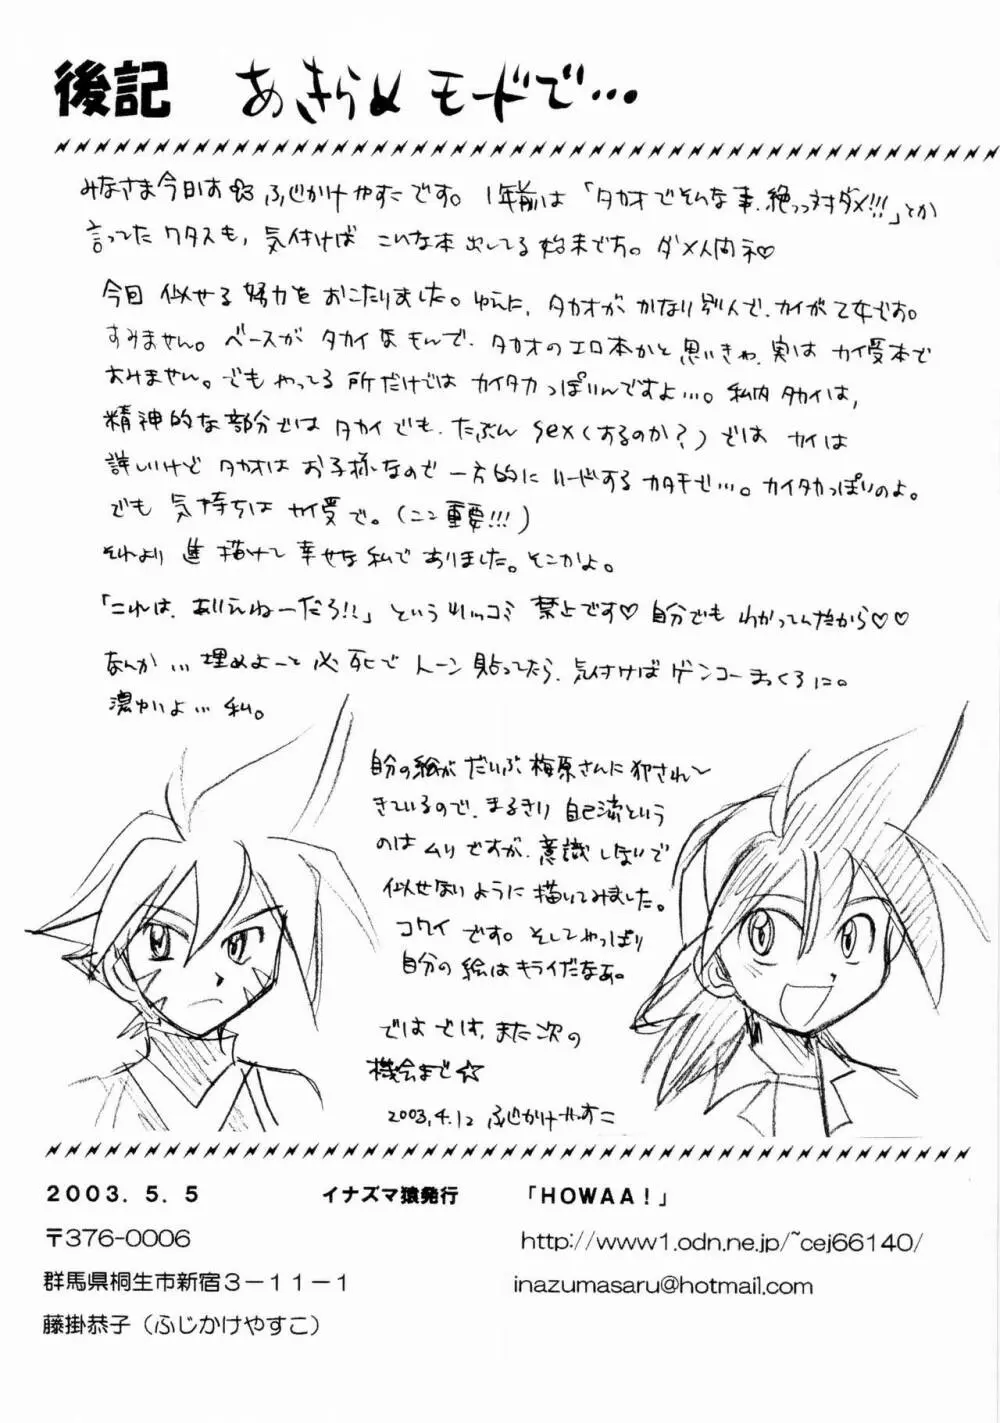 後記 あきらめモードで…
みなさま今日お ふじかけやすこです。1年前は「タカオでそんな事、絶っっ対ダメ!!!」とか
言ってたワタスも、気付けば こんな本 出してる始末です。ダメ人間ネ♡
今回 似せる努力を おこたりました。ゆえに、タカオが かなり別人で、カイが乙女です。
すみません。ベースが タカイなもんで、タカオのエロ本かと思いきや、実は カイ受本で
すみません。でも やってる 所だけでは カイタカっぽいんですよ…。私内 タカイは、
精神的な部分では タカイでも、たぶん sex(するのか?)では カイは
詳しいけど タカオは お子様なので 一方的に リードする カタチで…。カイタカっぽいのよ。
でも 気持ちは カイ受で。(ココ 重要!!!)
それより 進 描けて 幸せな 私で ありました。そこかよ。
「これは、ありえねーだろ!!」という ツッコミ 禁止です♡ 自分でも わかってんだから♡♡
なんか … 埋めよーと 必死で トーン 貼ってたら、気付けば ゲンコー まっくろに。
濃かいよ… 私。
自分の絵が だいぶ 梅原さんに 犯され〜
きているので、まるきり 自己流という
のは ムリ ですが、意識 しないで
似せないように 描いてみました。
コワイ です。そして やっぱり
自分の 絵は キライだなぁ。
では では、また 次の
機会まで☆
2003.4.12 ふじかけやすこ
2003.5.5 イナズマ猿発行 「HOWAA!」
〒376-0006 http://www1.odn.ne.jp/~cej66140/
群馬県桐生市新宿3-11-1 inazumasaru@hotmail.com
藤掛恭子(ふじかけやすこ)